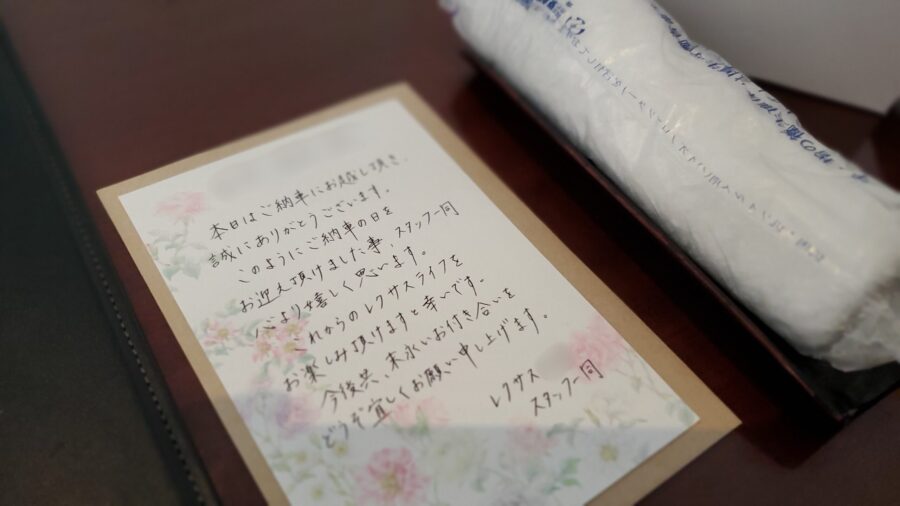 本日はご納車にお越し頂き、
誠にありがとうございます。
このようにご納車の日を
お迎え頂けました事、スタッフ一同
心より嬉しく思います。
これからのレクサスライフを
お楽しみ頂けますと幸いです。
今後共、末永いお付き合いを
どうぞ宜しくお願い申し上げます。
レクサス
スタッフ一同